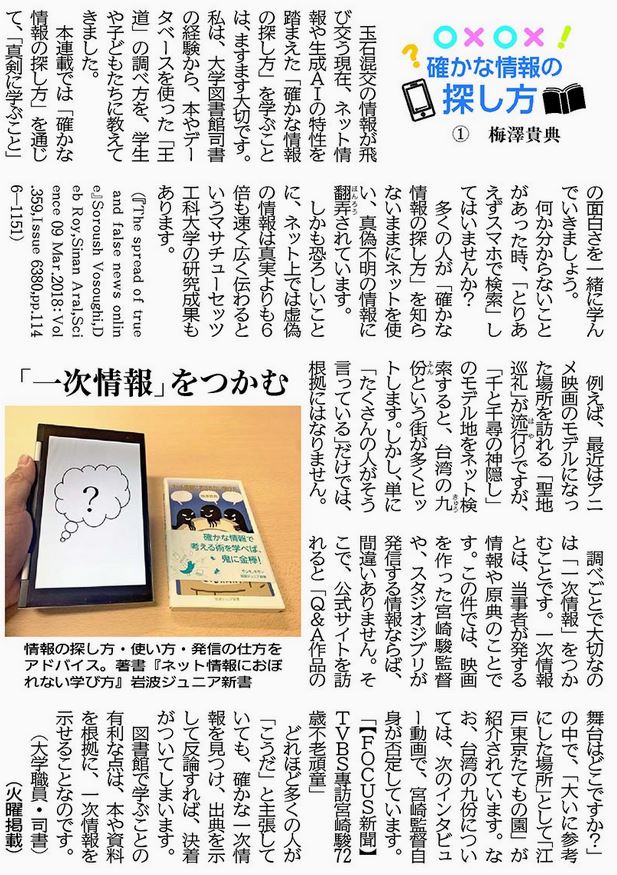 ○×○×!
?
確かな情報の
探し方
① 梅澤貴典
玉石混交の情報が飛
び交う現在、ネット情
報や生成AIの特性を
踏まえた「確かな情報
の探し方」を学ぶこと
は、ますます大切です。
私は、大学図書館司書
の経験から、本やデー
タベースを使った「王
道」の調べ方を、学生
や子どもたちに教えて
きました。
本連載では「確かな
情報の探し方」を通じ
て、「真剣に学ぶこと」
の面白さを一緒に学ん
でいきましょう。
何か分からないこと
があった時、「とりあ
えずスマホで検索」し
てはいませんか?
多くの人が「確かな
情報の探し方」を知ら
ないままにネットを使
い、真偽不明の情報に
翻弄されています。
ほんろう
しかも恐ろしいこと
に、ネット上では虚偽
の情報は真実よりも6
倍も速く広く伝わると
いうマサチューセッツ
工科大学の研究成果も
あります。
(『The spread of true
and false news onlin
e』Soroush Vosoughi,D
eb Roy,Sinan Aral,Sci
ence 09 Mar.2018:Vol
.359,Issue 6380,pp.114
6―1151)
「一次情報」をつかむ
例えば、最近はアニ
メ映画のモデルになっ
た場所を訪れる「聖地
巡礼」が流行りですが、
はや
「千と千尋の神隠し」
のモデル地をネット検
索すると、台湾の九
きゅう
份という街が多くヒッ
ふん
トします。しかし、単に
「たくさんの人がそう
言っている」だけでは、
根拠にはなりません。
調べごとで大切なの
は「一次情報」をつか
むことです。一次情報
とは、当事者が発する
情報や原典のことで
す。この件では、映画
を作った宮崎駿監督
や、スタジオジブリが
発信する情報ならば、
間違いありません。そ
こで、公式サイトを訪
れると「Q&A作品の
舞台はどこですか?」
の中で、「大いに参考
にした場所」として「江
戸東京たてもの園」が
紹介されています。な
お、台湾の九份につい
ては、次のインタビュ
ー動画で、宮崎監督自
身が否定しています。
「【FOCUS新聞】
TVBS專訪宮崎駿72
歲不老頑童」
どれほど多くの人が
「こうだ」と主張して
いても、確かな一次情
報を見つけ、出典を示
して反論すれば、決着
がついてしまいます。
図書館で学ぶことの
有利な点は、本や資料
を根拠に、一次情報を
示せることなのです。
(大学職員・司書)
(火曜掲載)
?
梅澤貴典
確かな情報で
考える術を学べば、
鬼に金棒!
情報の探し方・使い方・発信の仕方を
アドバイス。著書『ネット情報におぼ
れない学び方』岩波ジュニア新書